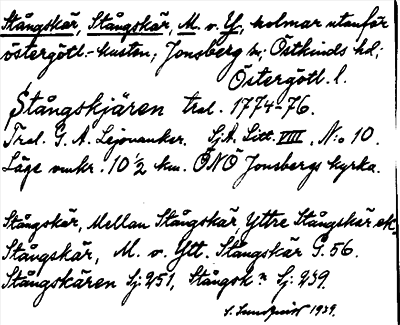 Stångskär, Stångskär, M. o. Y., holmar utanför
östergötl.-kusten; Jonsberg sn; Östkinds hd;
Östergötl. l.
Stångskjären tral. 1774-76.
Tral. G. A. Lejonancker. Sj.A. Litt. VIII, N:o 10.
Läge omkr. 10 1/2 km. ÖNÖ Jonsbergs kyrka.
Stångskär, Mellan Stångskär, Yttre Stångskär ek.
Stångskär, M. o. Ytt. Stångskär G. 56.
Stångskären Sj: 251, Stångsk:n Sj: 239.
S. Lundqvist 1939.